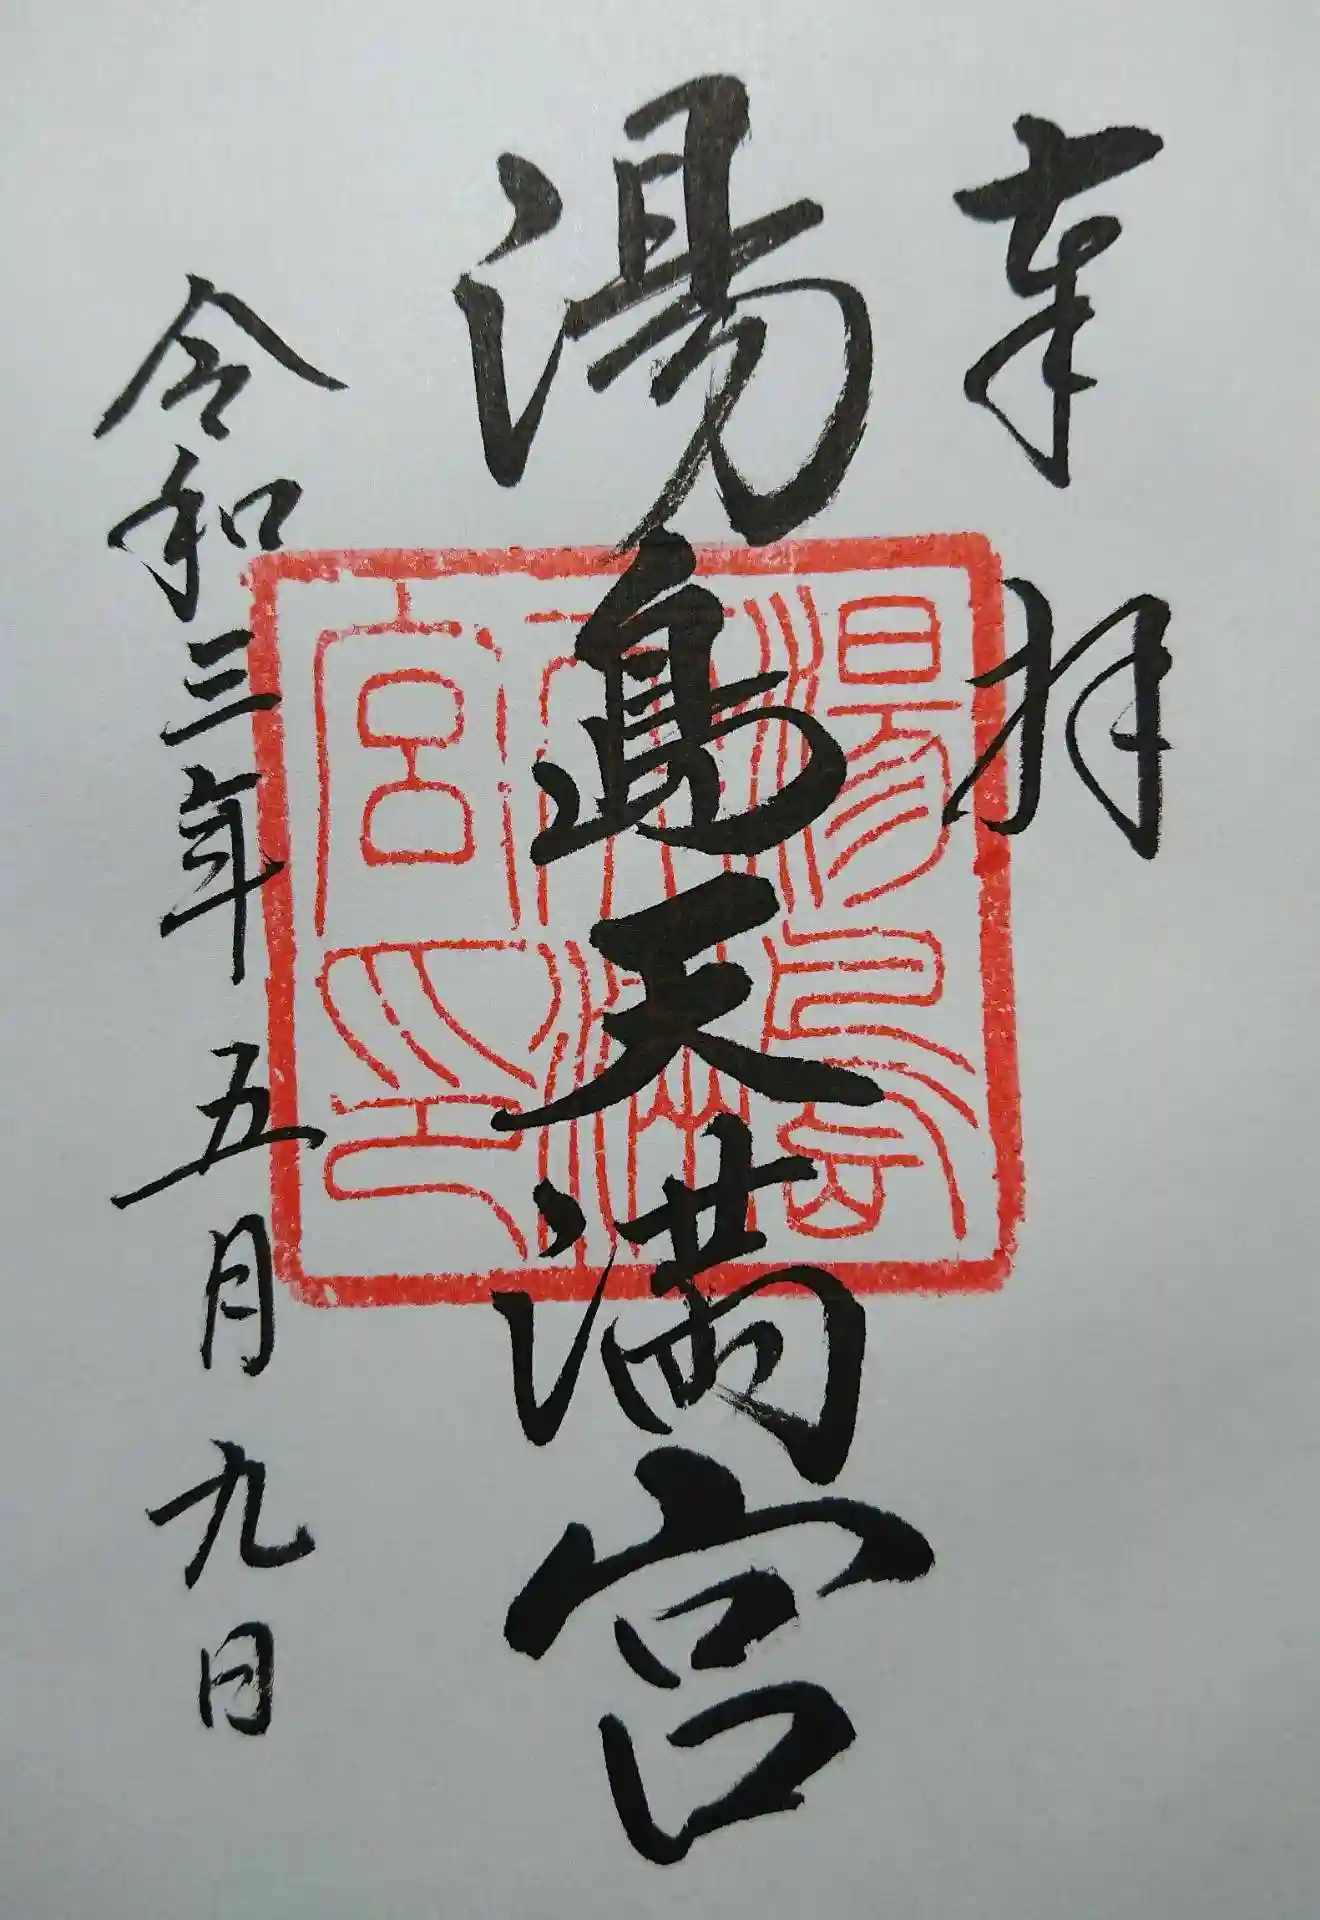 奉拝
湯島天満宮
令和三年五月九日
湯島天満宮印